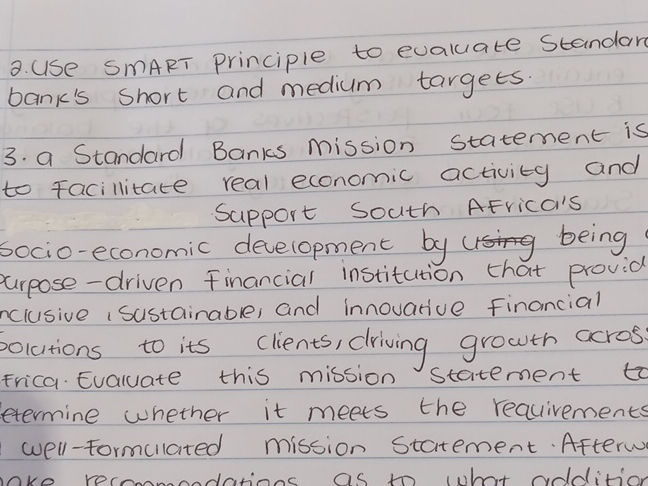 2. Use SMART principle to evaluate Standar
bank's short and medium targets.
3. a Standard Banks mission statement is
to facillitate real economic activity and
support South Africa's
socio-economic development by using being
purpose-driven financial institution that provid
nclusive, sustainable, and innovative financial
solutions to its clients, driving growth across
frica. Evaluate this mission statement to
etermine whether it meets the requirements
well-formulated mission statement. Afterw
make recommendations as to what addition